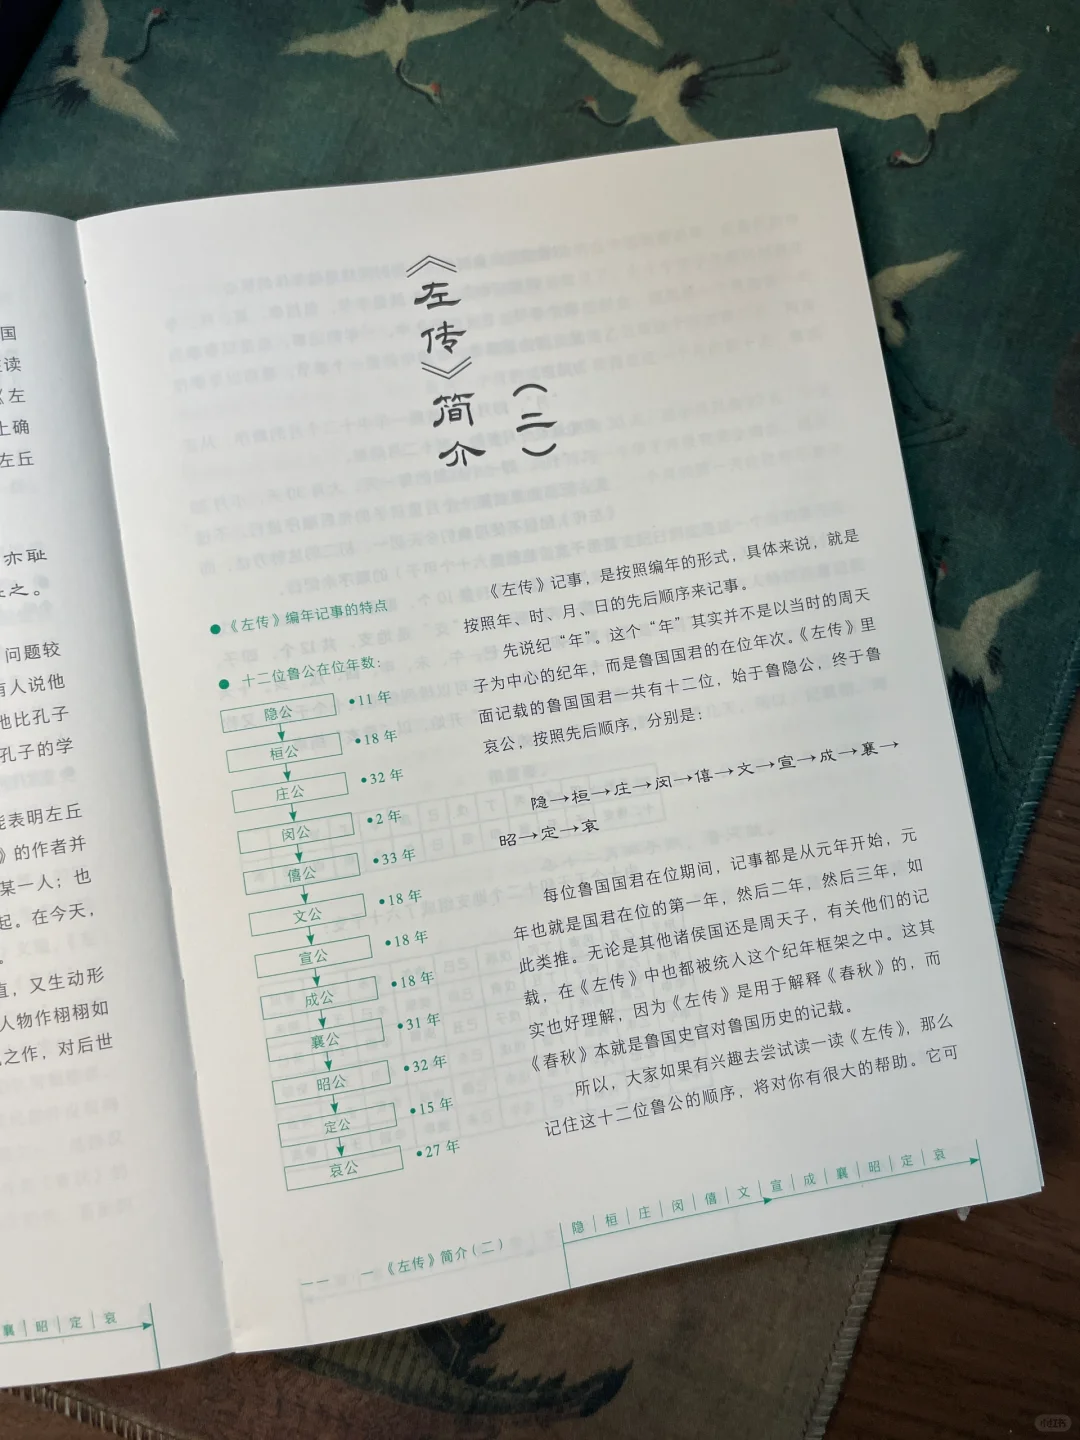 国
读
《左
上确
左丘
亦耻
之。
问题较
有人说他
他比孔子
孔子的学
能表明左丘
》的作者并
某一人；也
起。在今天，
。
直，又生动形
人物作栩栩如
之作，对后世
襄｜昭｜定｜哀
《左传》简介
（二）
●《左传》编年记事的特点
● 十二位鲁公在位年数：
隐公 •11 年
桓公 •18 年
庄公 •32 年
闵公 •2 年
僖公 •33 年
文公 •18 年
宣公 •18 年
成公 •18 年
襄公 •31 年
昭公 •32 年
定公 •15 年
哀公 •27 年
《左传》记事，是按照编年的形式，具体来说，就是
按照年、时、月、日的先后顺序来记事。
先说纪“年”。这个“年”其实并不是以当时的周天
子为中心的纪年，而是鲁国国君的在位年次。《左传》里
面记载的鲁国国君一共有十二位，始于鲁隐公，终于鲁
哀公，按照先后顺序，分别是：
隐→桓→庄→闵→僖→文→宣→成→襄→
昭→定→哀
每位鲁国国君在位期间，记事都是从元年开始，元
年也就是国君在位的第一年，然后二年，然后三年，如
此类推。无论是其他诸侯国还是周天子，有关他们的记
载，在《左传》中也都被统入这个纪年框架之中。这其
实也好理解，因为《左传》是用于解释《春秋》的，而
《春秋》本就是鲁国史官对鲁国历史的记载。
所以，大家如果有兴趣去尝试读一读《左传》，那么
记住这十二位鲁公的顺序，将对你有很大的帮助。它可
《左传》简介（二）
隐｜桓｜庄｜闵｜僖｜文｜宣｜成｜襄｜昭｜定｜哀
小红书